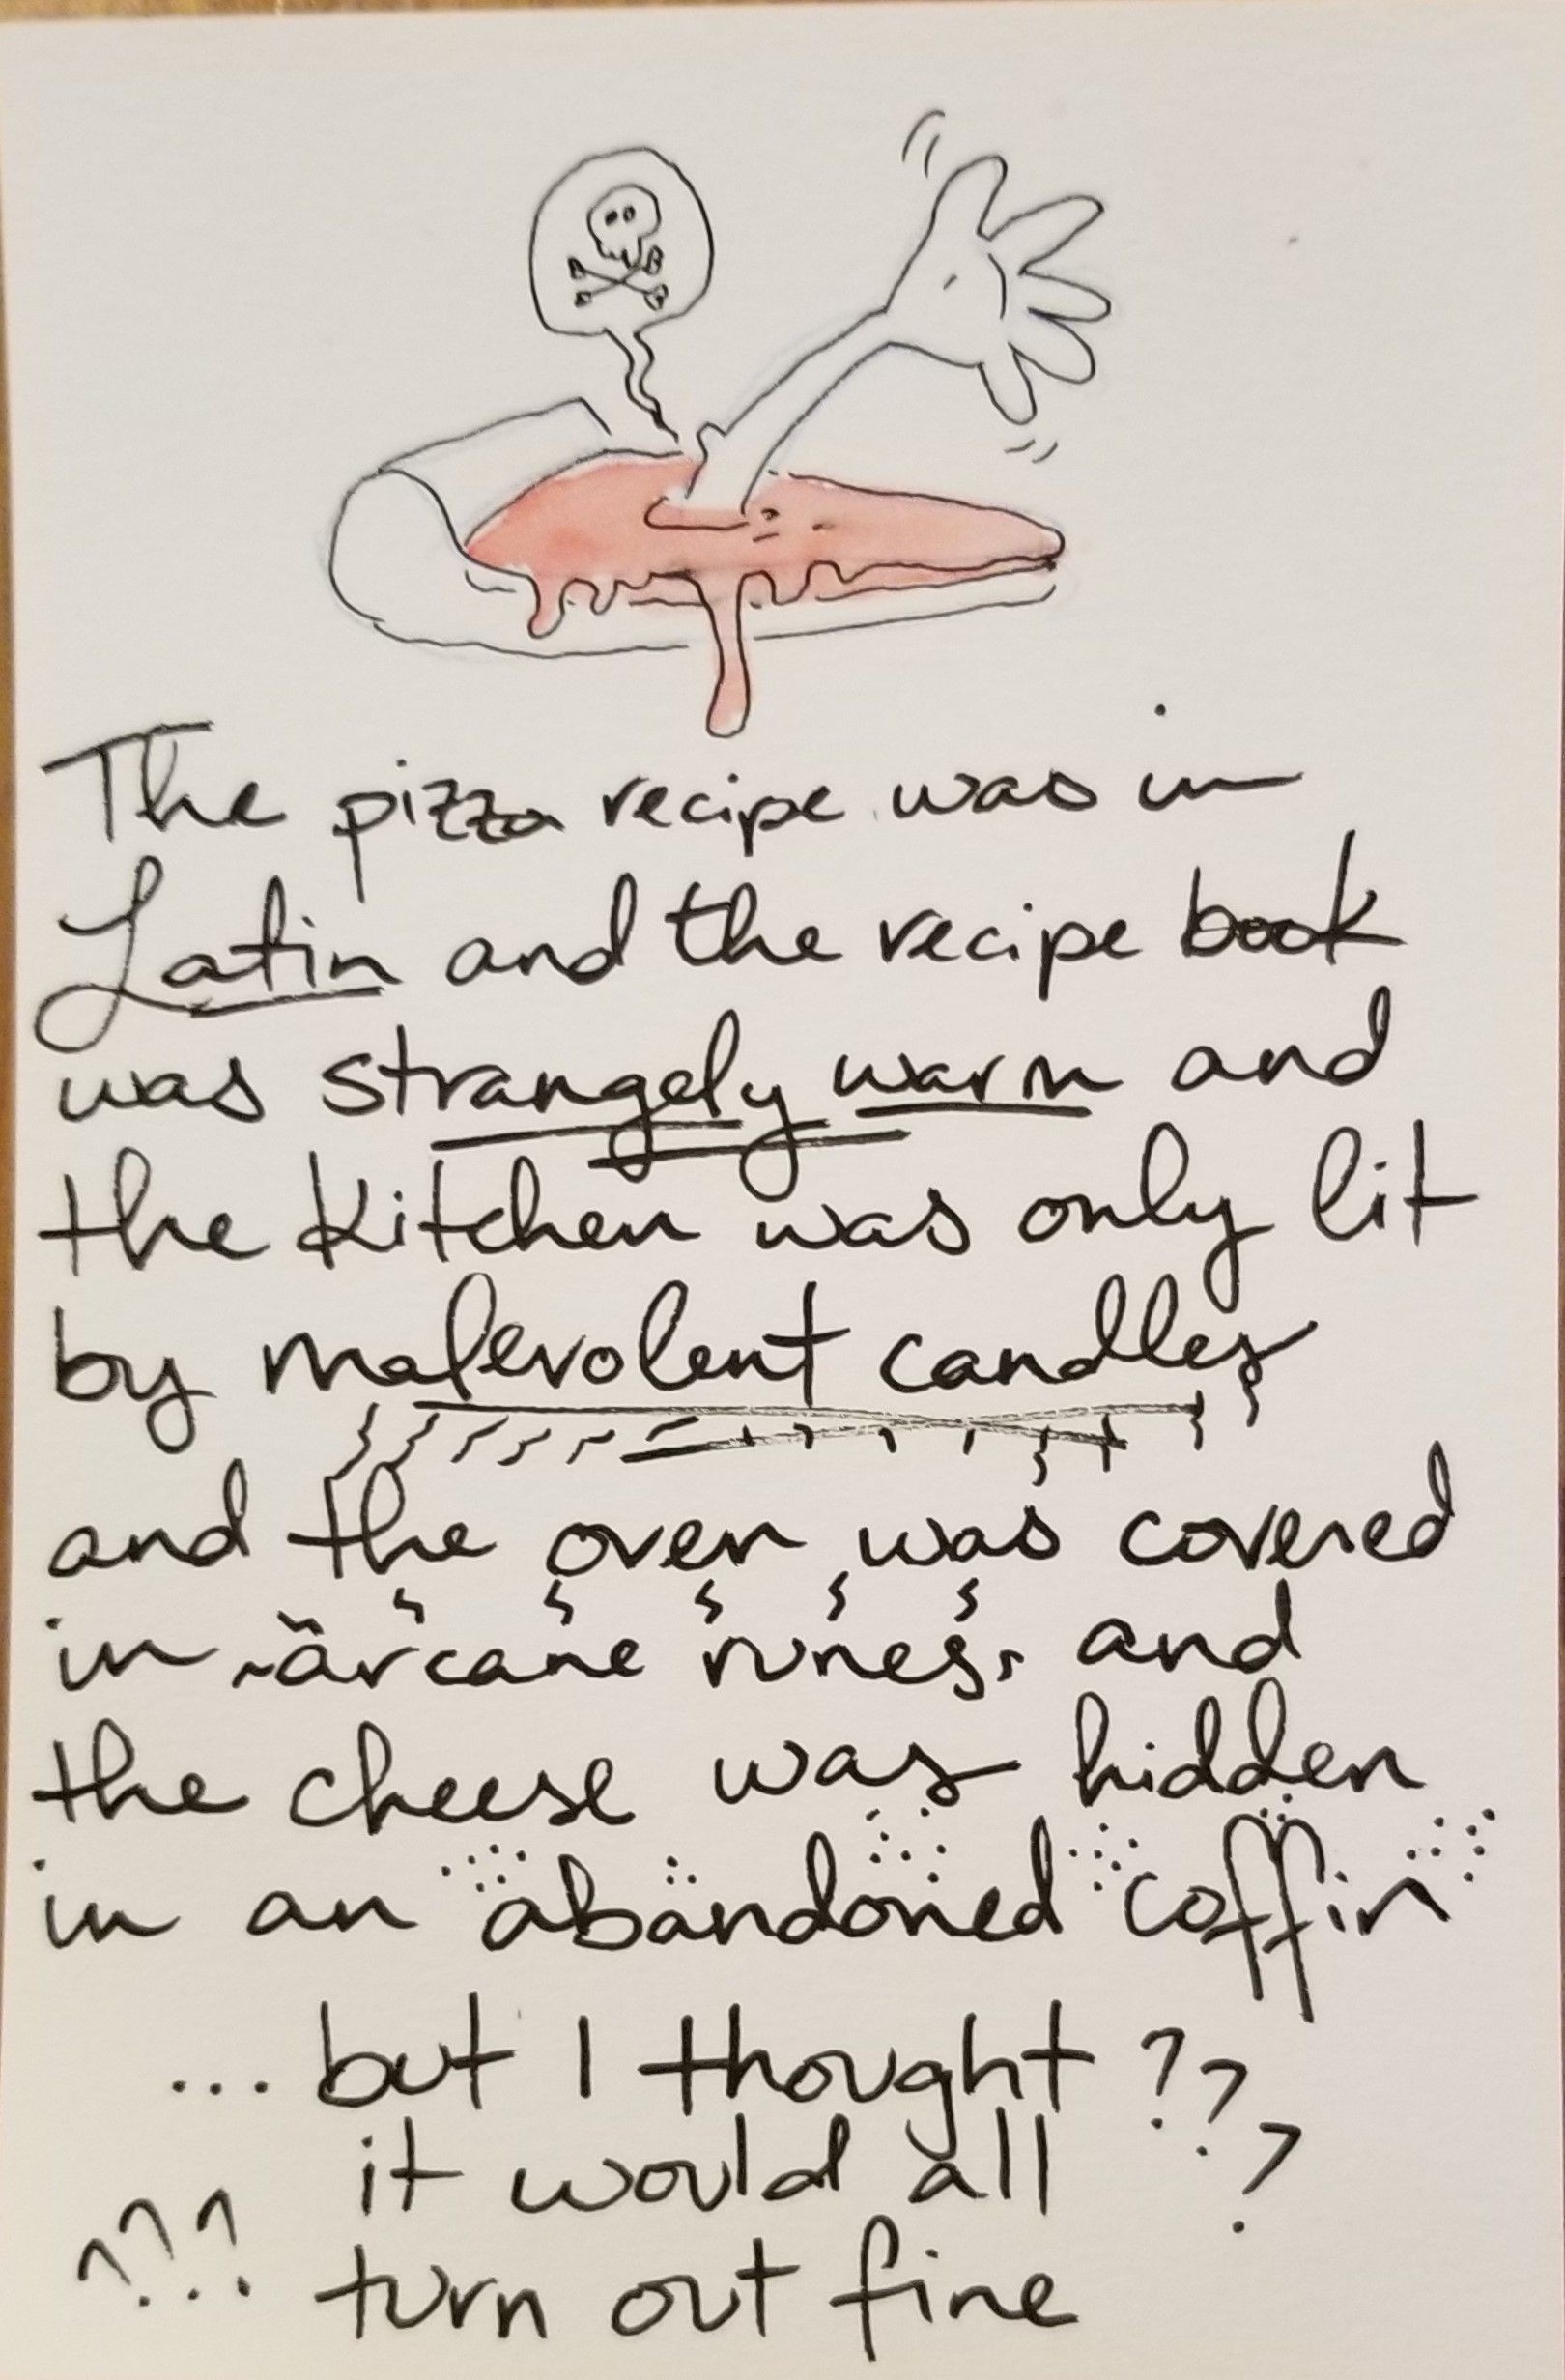 The pizza recipe was in
Latin and the recipe book
was strangely warm and
the kitchen was only lit
by malevolent candles
and the oven was covered
in ~arcane runes~ and
the cheese was hidden
in an abandoned coffin
... but I thought ???
it would all
??? turn out fine